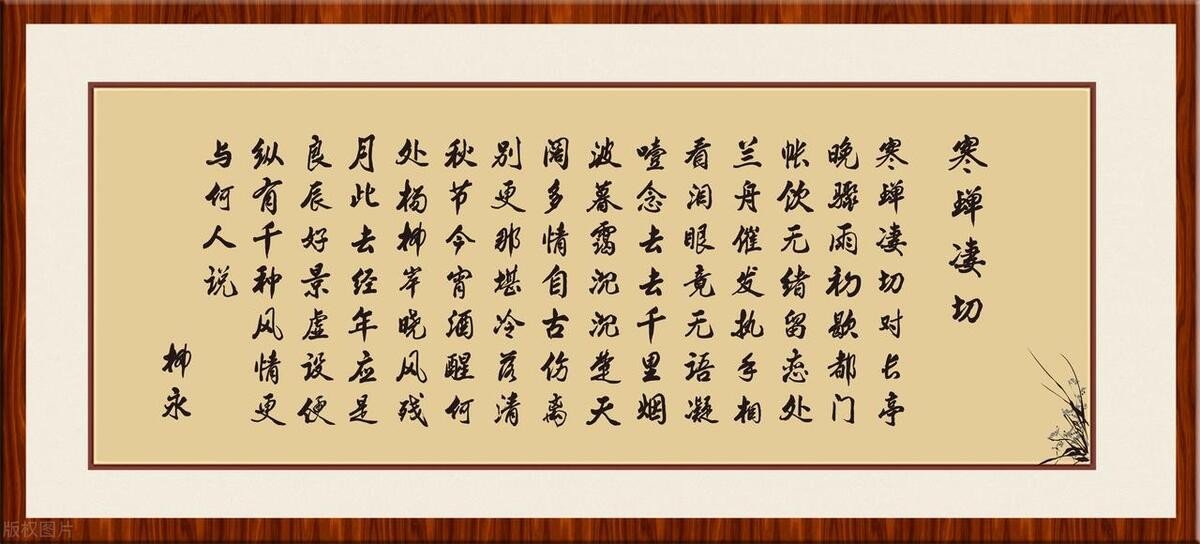 寒蝉凄切
寒蝉凄切对长亭
晚骤雨初歇都门
帐饮无绪留恋处
兰舟催发执手相
看泪眼竟无语凝
噎念去去千里烟
波暮霭沉沉楚天
阔多情自古伤离
别更那堪冷落清
秋节今宵酒醒何
处杨柳岸晓风残
月此去经年应是
良辰好景虚设便
纵有千种风情更
与何人说
柳永
版权图片